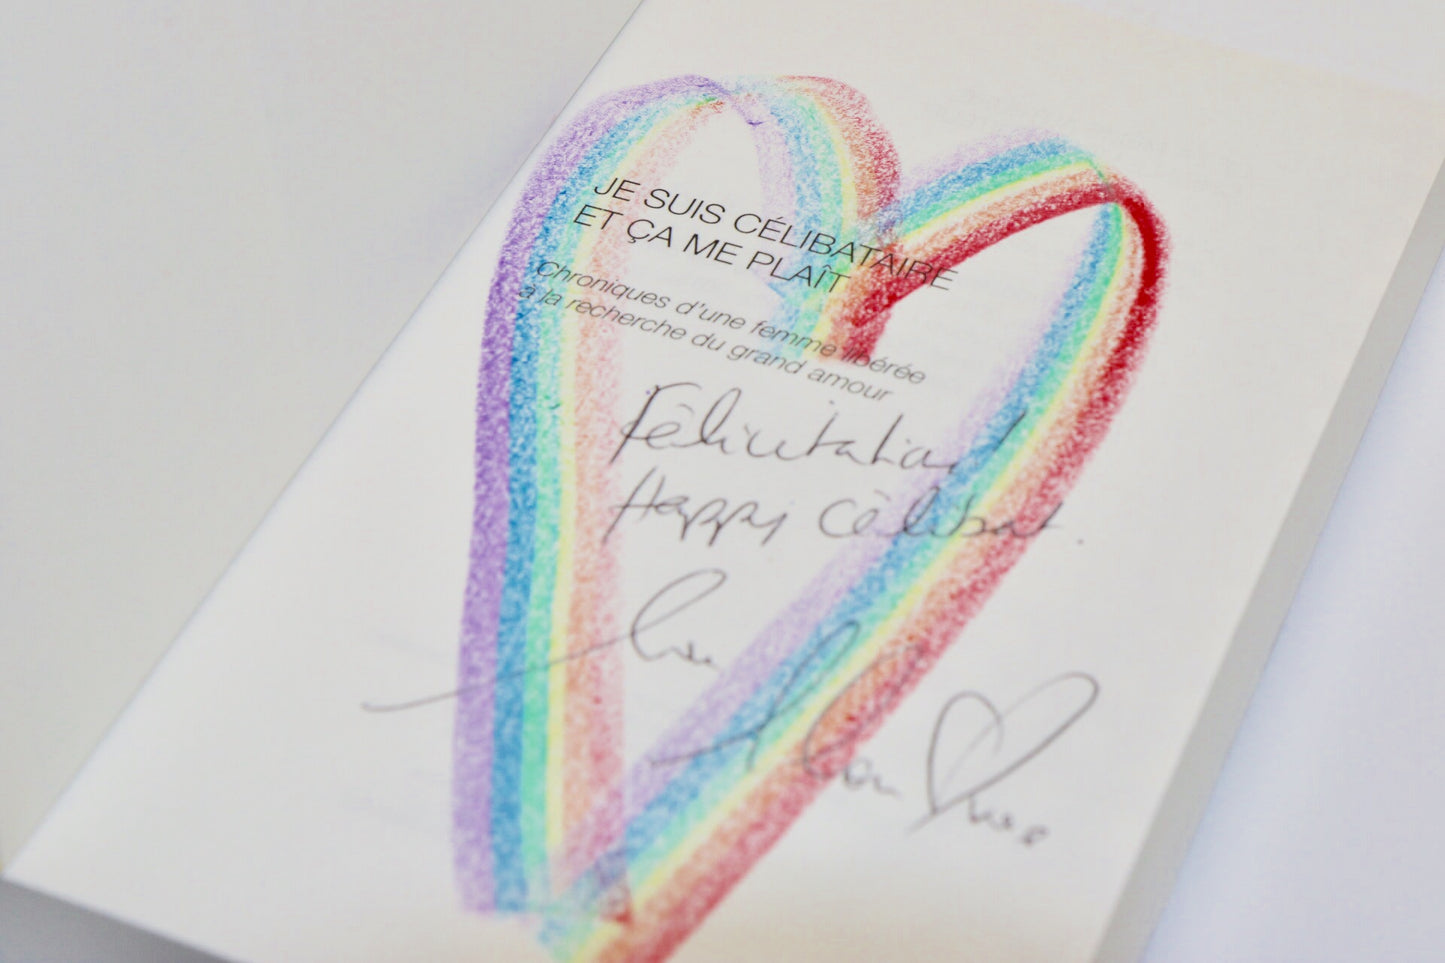 JE SUIS CÉLIBATAIRE
ET ÇA ME PLAÎT
Chroniques d'une femme libérée
à la recherche du grand amour
Félicitation!
Happy Célibat.